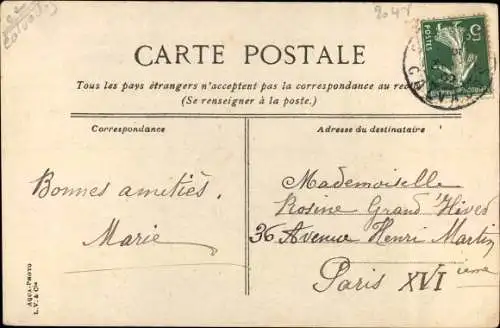 2041
CARTE POSTALE
Tous les pays étrangers n'acceptent pas la correspondance au
(Se renseigner à la poste.)
Correspondance
Adresse du destinataire
Bonnes amitiés.
Marie
Mademoiselle
Rosine Grand'Hived
36 Avenue Henri Martin
Paris XVI ième
AQUA-PHOTO
L.V. & Cie
5c
POSTES